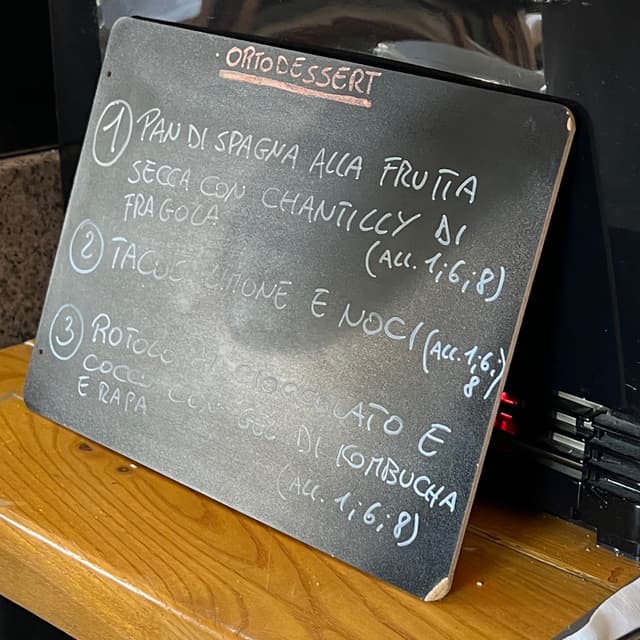 ORTODESSERT
1 PAN DI SPAGNA ALLA FRUTTA
SECCA CON CHANTILLY DI
FRAGOLA
(ALL. 1;6;8)
2 E NOCI (ALL. 1;6;
8)
3 CIOCCOLATO E
COCCO CON GEL DI KOMBUCHA
E RAPA
(ALL. 1,6,8)